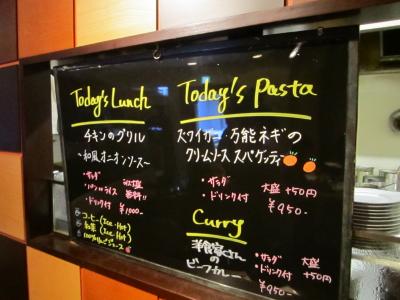 Today's Lunch
チキンのグリル
~和風オニオンソース~
・サラダ
・パン or ライス
・ドリンク付 ¥1000-
コーヒー (Ice・Hot)
紅茶 (Ice・Hot)
100%りんごジュース
Today's Pasta
ズワイガニ・万能ネギの
クリームソース スパゲッティ
・サラダ 大盛 +50円
・ドリンク付 ¥950-
Curry
洋食屋さん
の
ビーフカレー
・サラダ 大盛 +50円
・ドリンク付
¥950-